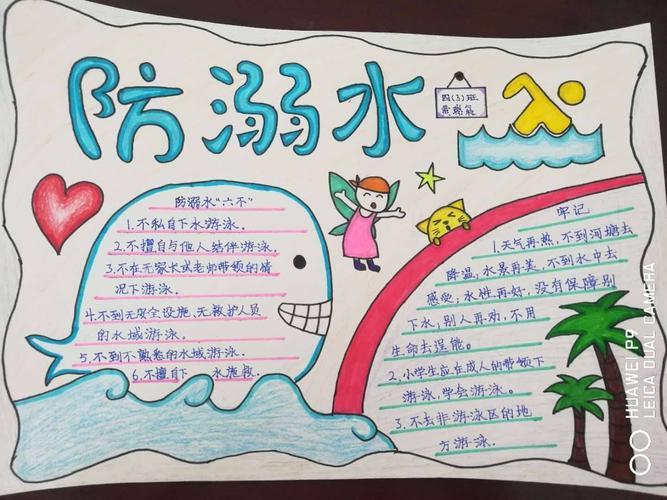 防溺水
四(3)班
防溺水“六不”
1.不私自下水游泳。
2.不擅自与他人结伴游泳。
3.不在无家长或老师带领的情
况下游泳。
4.不到无安全设施、无救护人员
的水域游泳。
5.不到不熟悉的水域游泳。
6.不擅自下 水施救。
牢记
1.天气再热,不到河塘去
降温,水景再美,不到水中去
感受;水性再好,没有保障别
下水;别人再劝,不用
生命去逞能。
2.小学生应在成人的带领下
游泳,学会游泳。
3.不去非游泳区的地
方游泳.
HUAWEI P9
LEICA DUAL CAMERA